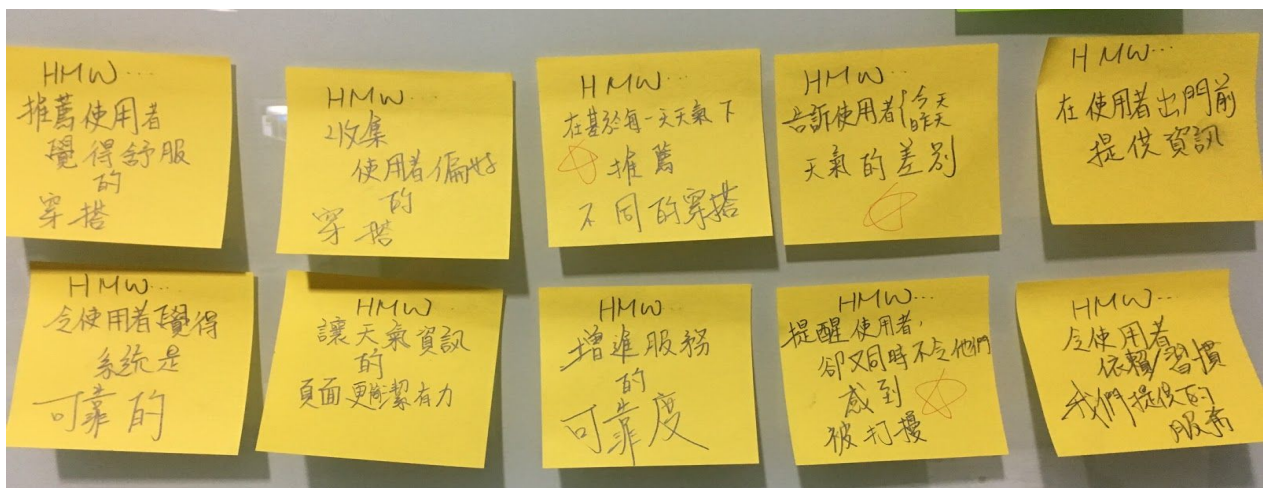 HMW…
推薦使用者
覺得舒服
的
穿搭
HMW…
收集
使用者偏好
的
穿搭
HMW…
在基於每一天天氣下
推薦
不同的穿搭
HMW…
告訴使用者{今天
昨天
天氣的差別
HMW…
在使用者出門前
提供資訊
HMW…
令使用者覺得
系統是
可靠的
HMW…
讓天氣資訊
的
頁面更簡潔有力
HMW…
增進服務
的
可靠度
HMW…
提醒使用者,
卻又同時不令他們
感到
被打擾
HMW…
令使用者
依賴/習慣
我們提供的
服務